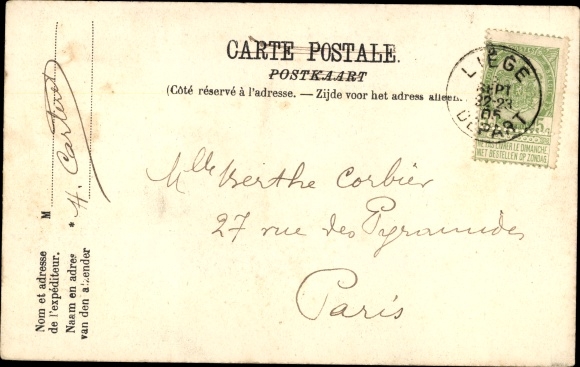 CARTE POSTALE.
POSTKAART
(Côté réservé à l'adresse. — Zijde voor het adres alleen.
LIÈGE
SEPT
22-23
05
DÉPART
NE PAS LIVRER LE DIMANCHE
NIET BESTELLEN OP ZONDAG
Mlle Berthe Corbier
27 rue des Pyramides
Paris
Nom et adresse M
de l'expéditeur.
Naam en adres * H. Carteret
van den afzender